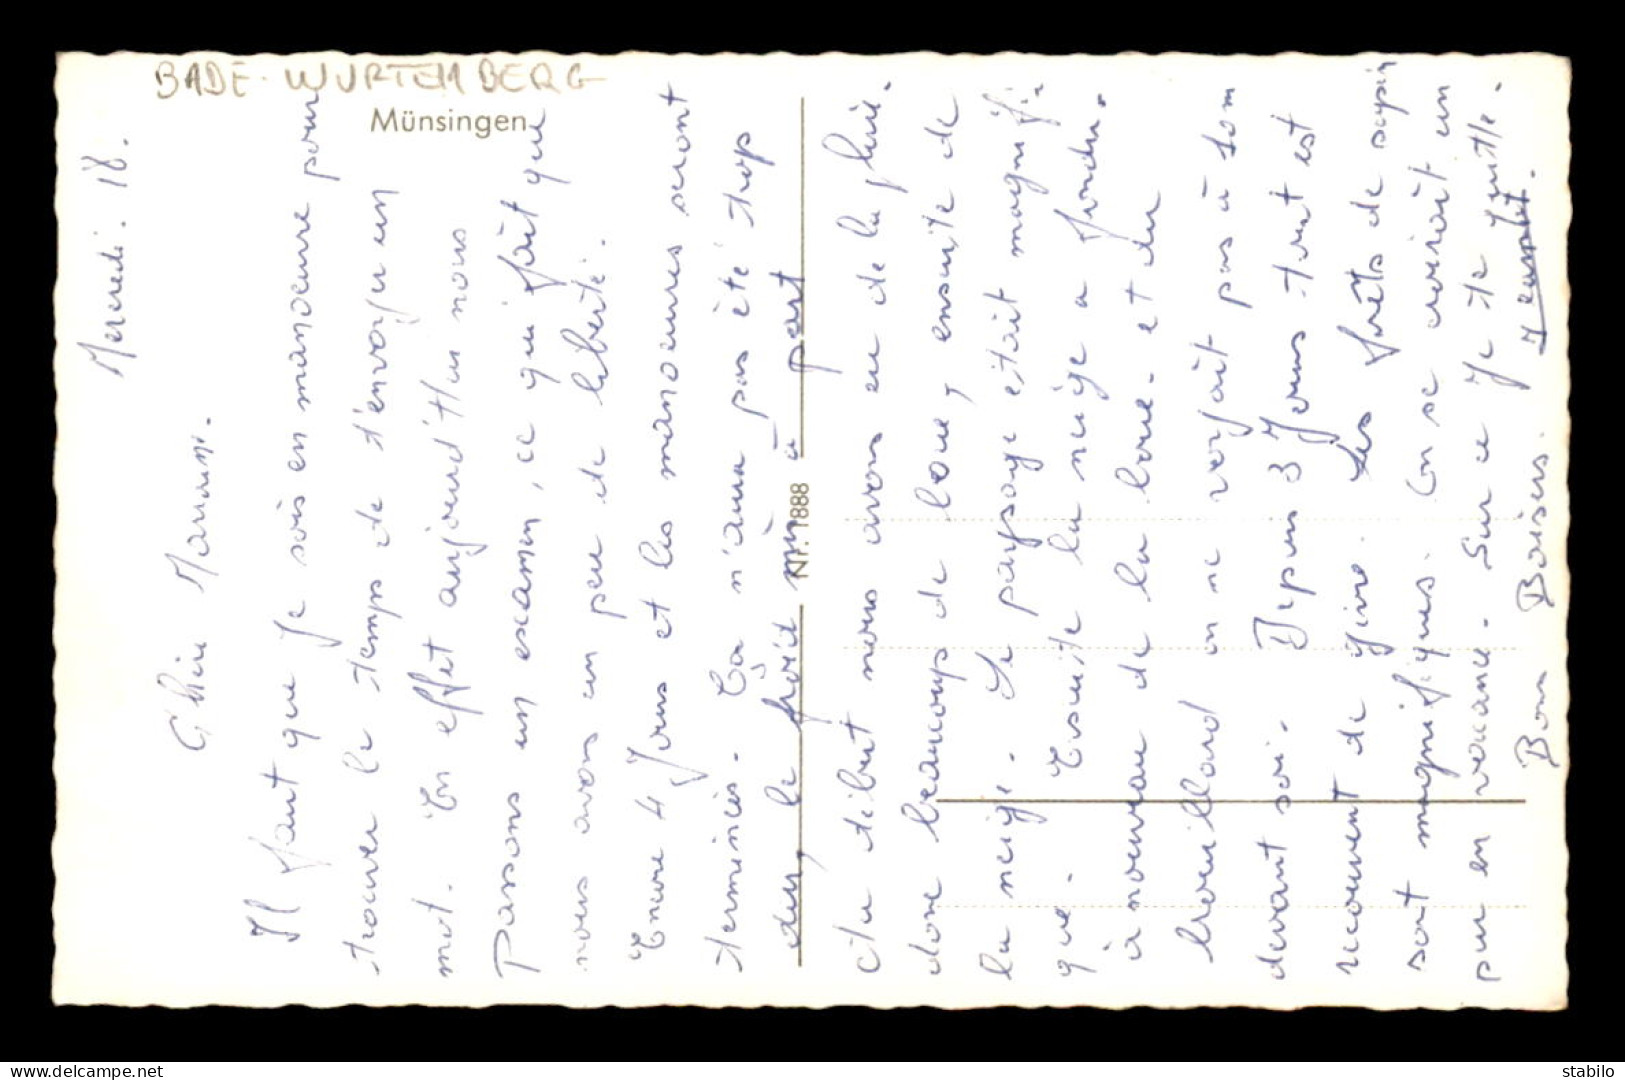 BADE-WURTEMBERG
Münsingen
Nr. 1888
Mercredi. 18.
Chère Maman.
Il faut que je sois en manoeuvre pour
trouver le temps de t'envoyer un
mot. En effet aujourd'hui nous
Passons un examen, ce qui fait que
nous avons un peu de liberté.
Encore 4 Jours et les manoeuvres seront
terminés. Ça n'aura pas été trop
dur, le froid mis à part
Au début nous avons eu de la pluie.
donc beaucoup de boue, ensuite de
la neige. Le paysage était magnifi
que. Ensuite la neige a fondu.
à nouveau de la boue. et du
brouillard on ne voyait pas à 10m
devant soi. Depuis 3 Jours tout est
recouvert de givre. Les forêts de sapin
sont magnifiques. On se croirait un
peu en vacance. Sur ce Je te quitte.
Bons Baisers.
delcampe.net
stabilo